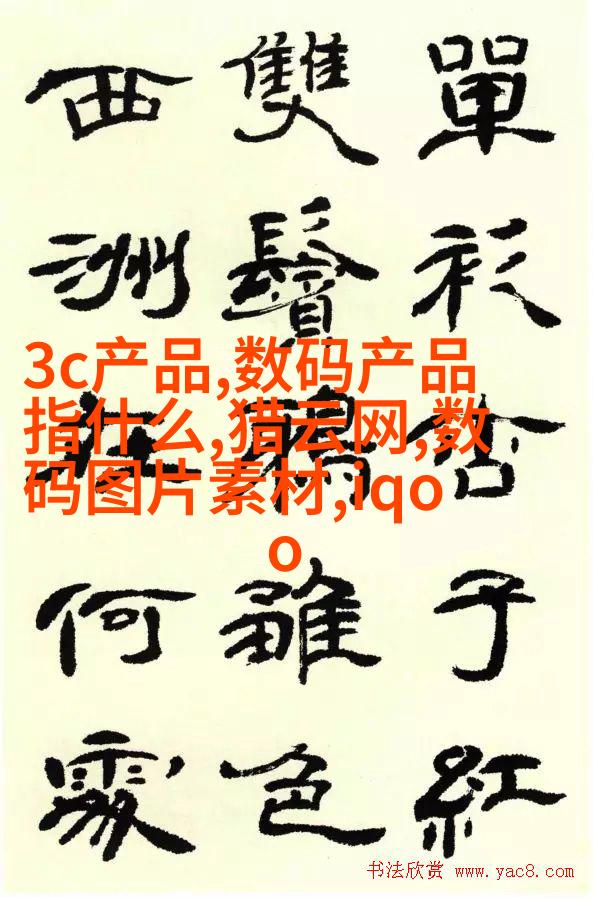 單衫杏子紅
雙鬢鴉雛色
西洲在何處
3c产品,数码产品
指什么,猎云网,数
码图片素材,iqo
o
书法欣赏 www.yac8.com